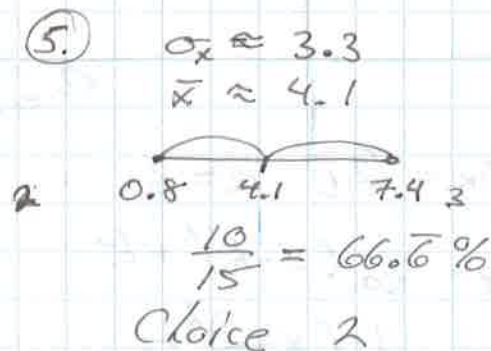 5. σx ≈ 3.3
x̄ ≈ 4.1
2 0.8 4.1 7.4 3
10/15 = 66.6̅ %
Choice 2